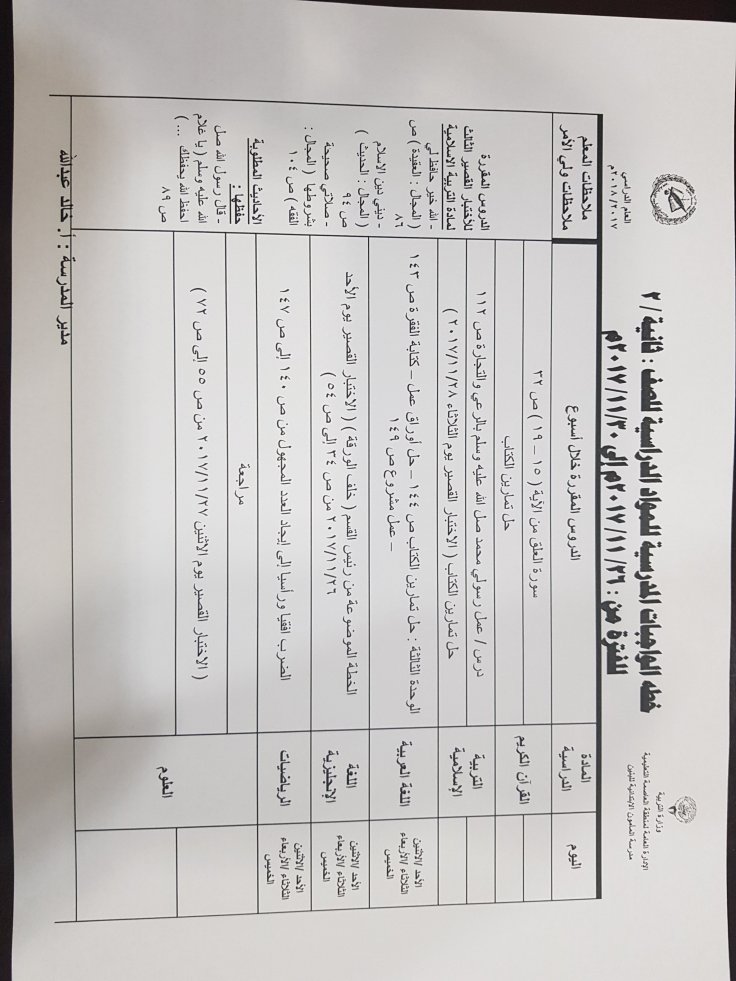 وزارة التربية
الإدارة العامة لمنطقة العاصمة التعليمية
مدرسة المأمون الابتدائية بنين
العام الدراسي
٢٠١٨/٢٠١٧م
خطه الواجبات المدرسية للمواد الدراسية للصف : ثانية / ٢
للفترة من : ٢٠١٧/١١/٢٦م إلى ٢٠١٧/١١/٣٠م
اليوم
المادة الدراسية
الدروس المقررة خلال أسبوع
ملاحظات المعلم
ملاحظات ولي الأمر
القرآن الكريم
سورة العلق من الآية ( ١٥ – ١٩ ) ص ٣٢
حل تمارين الكتاب
التربية الإسلامية
درس / عمل رسولي محمد صل الله عليه وسلم بالرعي والتجارة ص ١١٢
حل تمارين الكتاب ( الاختبار القصير يوم الثلاثاء ٢٠١٧/١١/٢٨ )
الأحد /الاثنين
الثلاثاء /الأربعاء
الخميس
اللغة العربية
الوحدة الثالثة : حل تمارين الكتاب ص ١٤٤ – حل أوراق عمل – كتابة الفقرة ص ١٤٣
– عمل مشروع ص ١٤٩
الأحد /الاثنين
الثلاثاء /الأربعاء
الخميس
اللغة الإنجليزية
الخطة الموضوعة من رئيس القسم ( خلف الورقة ) ( الاختبار القصير يوم الأحد
٢٠١٧/١١/٢٦ من ص ٣٤ إلى ص ٥٤ )
الأحد /الاثنين
الثلاثاء /الأربعاء
الخميس
الرياضيات
الضرب افقيا ورأسيا إلى إيجاد العدد المجهول من ص ١٤٠ إلى ص ١٤٧
العلوم
مراجعة
( الاختبار القصير يوم الاثنين ٢٠١٧/١١/٢٧ من ص ٥٥ إلى ص ٧٢ )
الدروس المقررة
للأختبار القصير الثالث
لمادة التربية الاسلامية
- الله خير حافظ لي
( المجال : العقيدة ) ص
٨٦
- ديني دين الاسلام
( المجال : الحديث )
ص ٩٤
- صلاتي صحيحة
بشروطها ( المجال :
الفقه ) ص ١٠٤
الأحاديث المطلوبة
حفظها :
- قال رسول الله صل
الله عليه وسلم ( يا غلام
احفظ الله يحفظك ... )
ص ٨٩
مدير المدرسة : أ. خالد عبدالله